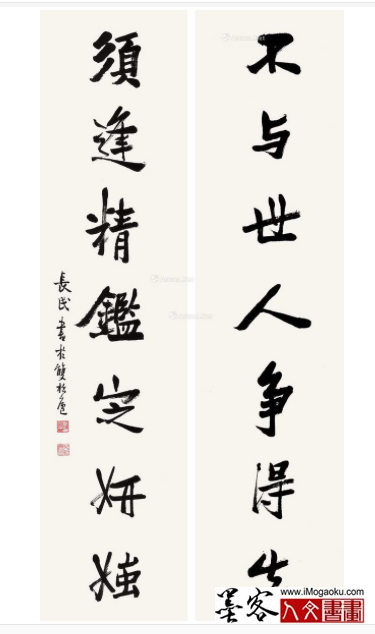 不与世人争得
須逢精鑑定妍媸
長民書於雙栝廬
墨客
www.iMogaoku.com
人文書畫